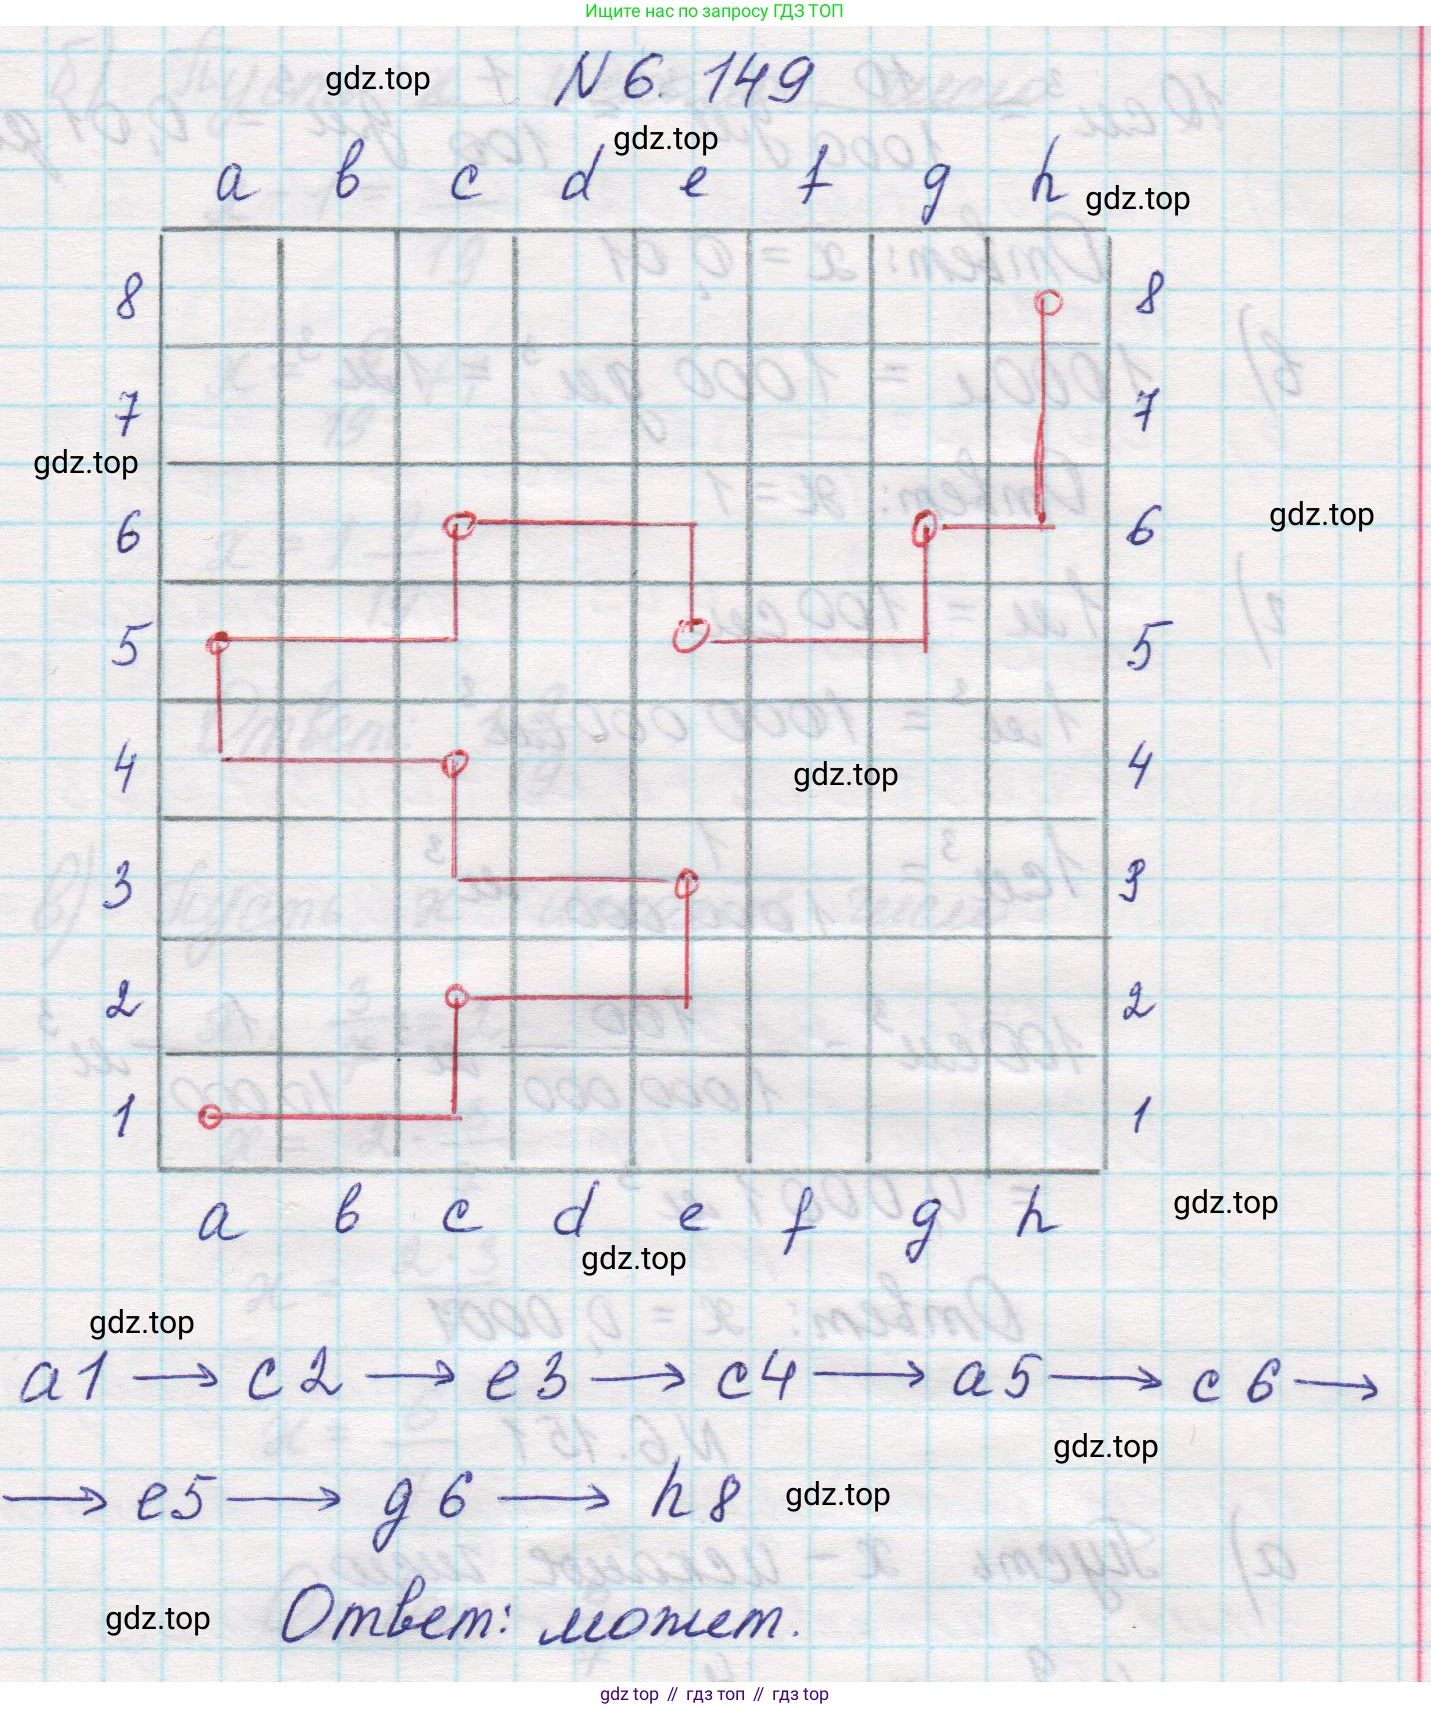 Ищите нас по запросу ГДЗ ТОП
N 6. 149
gdz.top
gdz.top
a b c d e f g h
gdz.top
8 8
7 7
gdz.top
6 6
gdz.top
5 5
4 4
gdz.top
3 3
2 2
1 1
a b c d e f g h
gdz.top
gdz.top
gdz.top
a1 → c2 → e3 → c4 → a5 → c6 →
gdz.top
→ e5 → g6 → h8
gdz.top
Ответ: может.
gdz.top
gdz top // гдз топ // gdz.top